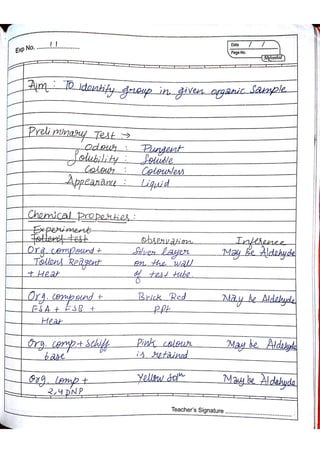 Exp No. 11
Date / /
Page No.
Aim : To identify group in given organic sample
Preliminary Test →
Odour : Pungent
Solubility : Soluble
Colour : Colourless
Appearance : Liquid
Chemical Properties :
Experiment Observation Inference
Tollen's test
Org. compound + Silver layer May be Aldehyde
Tollens Reagent on the wall
+ Heat of test tube.
Org. compound + Brick Red May be Aldehyde
FSA + FSB + ppt
Heat
Org. comp + Schiff Pink colour May be Aldehyde
base is retained
Org. comp + Yellow May be Aldehyde
2,4 DNP
Teacher's Signature